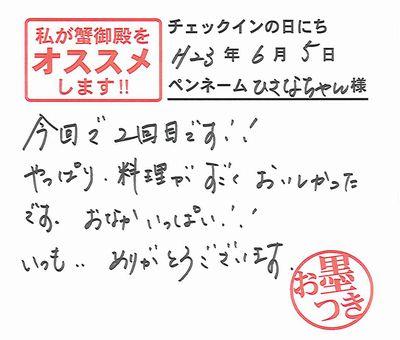 私が蟹御殿を
オススメ
します!!
チェックインの日にち
H23年6月5日
ペンネーム ひさなちゃん様
今回で2回目です!!
やっぱり、料理がすごくおいしかった
です。おなかいっぱい!!
いつも‥ありがとうございます。
お墨つき